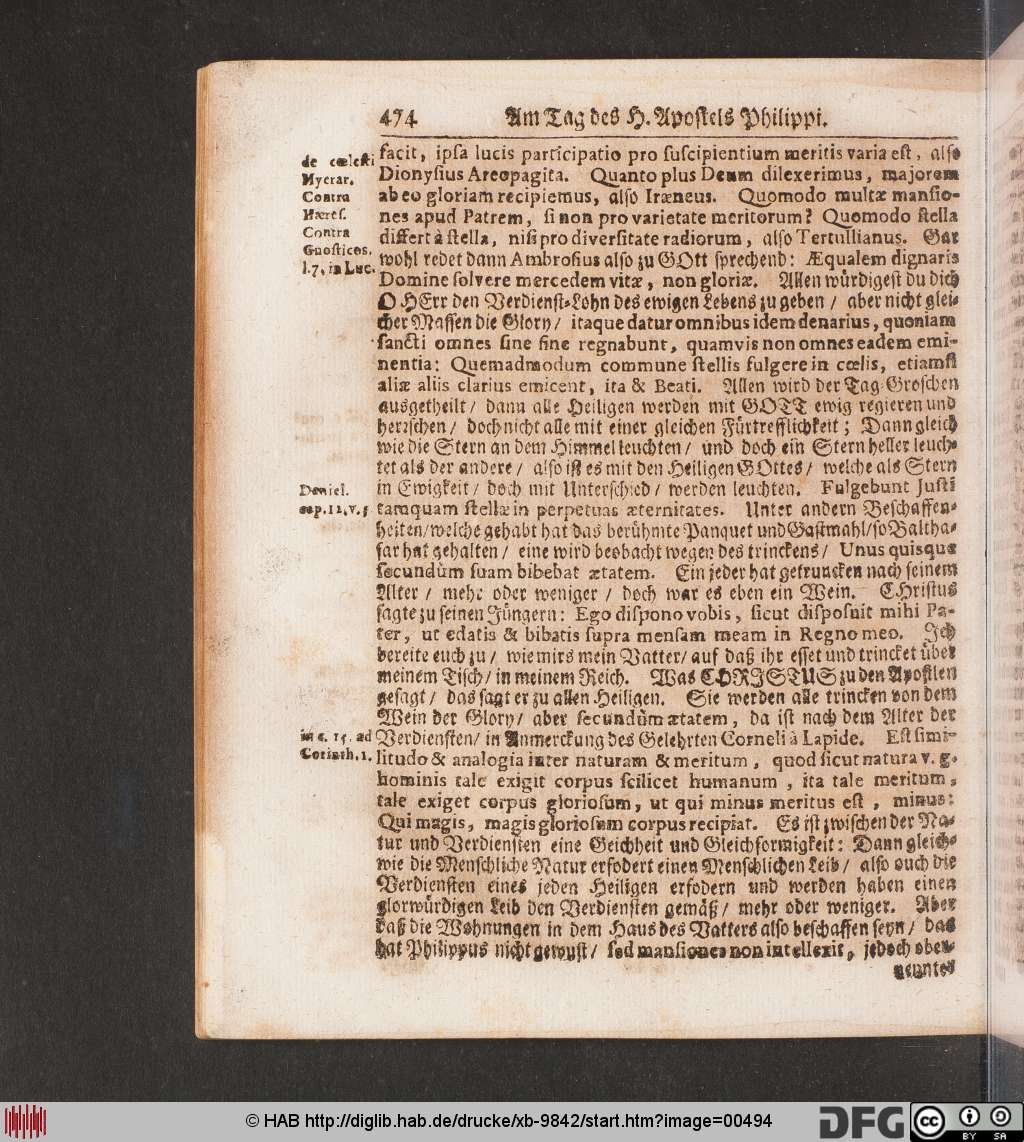 474 Am Tag des H. Apostels Philippi.
de cœlesti
Hyerar.
Contra
Hæres.
Contra
Gnosticos.
l. 7. in Luc.
facit, ipsa lucis participatio pro suscipientium meritis varia est, also
Dionysius Areopagita. Quanto plus Deum dilexerimus, majorem
ab eo gloriam recipiemus, also Iræneus. Quomodo multæ mansio-
nes apud Patrem, si non pro varietate meritorum? Quomodo stella
differt à stella, nisi pro diversitate radiorum, also Tertullianus. Gar
wohl redet dann Ambrosius also zu GOtt sprechend: Æqualem dignaris
Domine solvere mercedem vitæ, non gloriæ. Allen würdigest du dich
O HErr den Verdienst-Lohn des ewigen Lebens zu geben / aber nicht glei-
cher Massen die Glory / itaque datur omnibus idem denarius, quoniam
sancti omnes sine fine regnabunt, quamvis non omnes eadem emi-
nentia: Quemadmodum commune stellis fulgere in cœlis, etiamsi
aliæ aliis clarius emicent, ita & Beati. Allen wird der Tag-Groschen
ausgetheilt / dann alle Heiligen werden mit GOTT ewig regieren und
herrschen / doch nicht alle mit einer gleichen Fürtrefflichkeit; Dann gleich
wie die Stern an dem Himmel leuchten / und doch ein Stern heller leuch-
tet als der andere / also ist es mit den Heiligen GOttes / welche als Stern
in Ewigkeit / doch mit Unterschied / werden leuchten. Fulgebunt Justi
Daniel.
cap. 12. v. 3
tamquam stellæ in perpetuas æternitates. Unter andern Beschaffen-
heiten / welche gehabt hat das berühmte Panquet und Gastmahl / so Baltha-
sar hat gehalten / eine wird beobacht wegen des trinckens / Unus quisque
secundùm suam bibebat ætatem. Ein jeder hat getruncken nach seinem
Alter / mehr oder weniger / doch war es eben ein Wein. CHristus
sagte zu seinen Jüngern: Ego dispono vobis, sicut disposuit mihi Pa-
ter, ut edatis & bibatis supra mensam meam in Regno meo. Jch
bereite euch zu / wie mirs mein Vatter / auf daß ihr esset und trincket über
meinem Tisch / in meinem Reich. Was CHRISTUS zu den Apostlen
gesagt / das sagt er zu allen Heiligen. Sie werden alle trincken von dem
Wein der Glory / aber secundùm ætatem, da ist nach dem Alter der
in c. 15. ad
Corinth. 1.
Verdiensten / in Anmerckung des Gelehrten Corneli à Lapide. Est simi-
litudo & analogia inter naturam & meritum, quod sicut natura v. g.
hominis tale exigit corpus scilicet humanum, ita tale meritum,
tale exiget corpus gloriosum, ut qui minus meritus est, minus:
Qui magis, magis gloriosum corpus recipiat. Es ist zwischen der Na-
tur und Verdiensten eine Geichheit und Gleichformigkeit: Dann gleich-
wie die Menschliche Natur erfodert einen Menschlichen Leib / also auch die
Verdiensten eines jeden Heiligen erfodern und werden haben einen
glorwürdigen Leib den Verdiensten gemäß / mehr oder weniger. Aber
daß die Wohnungen in dem Haus des Vatters also beschaffen seyn / das
hat Philippus nicht gewust / sed mansiones non intellexit, jedoch oben-
nenntes
© HAB http://diglib.hab.de/drucke/xb-9842/start.htm?image=00494
DFG
cc BY SA